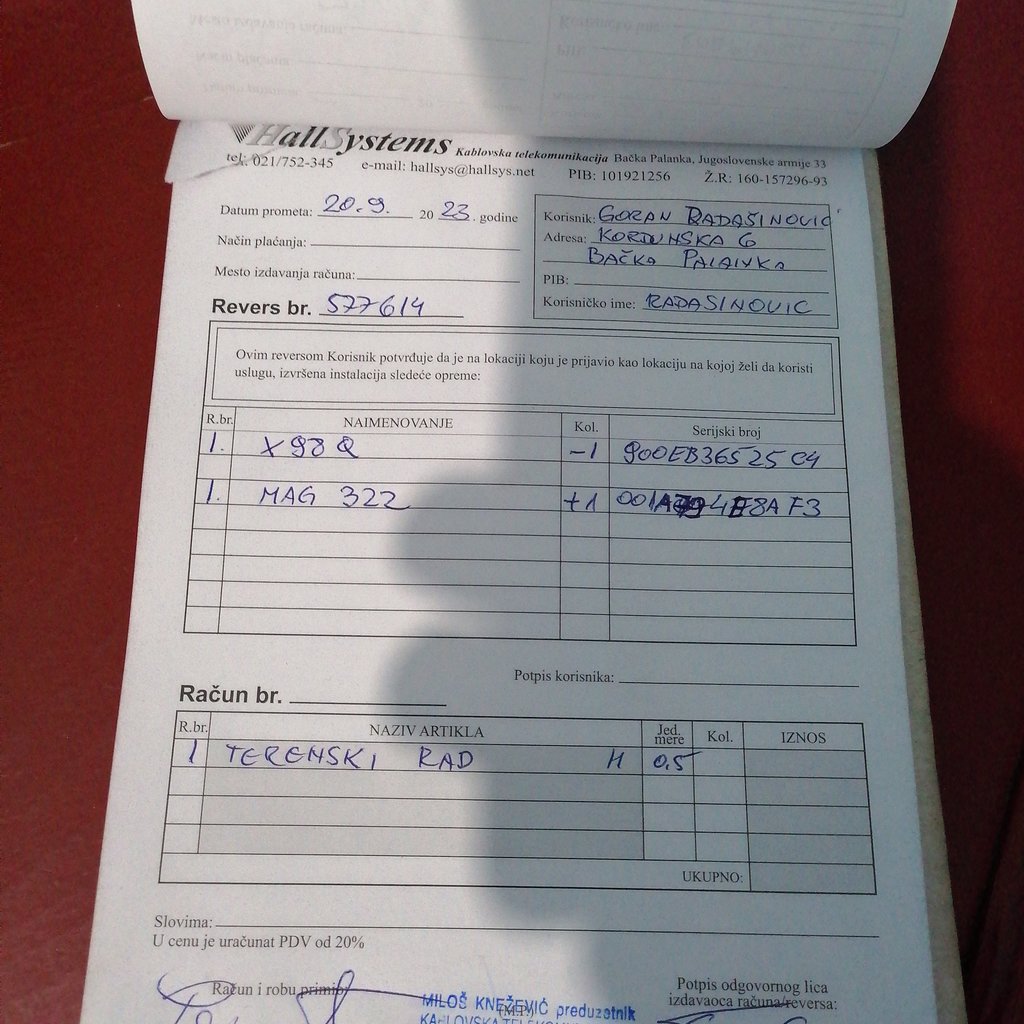 HallSystems Kablovska telekomunikacija Bačka Palanka, Jugoslovenske armije 33
tel: 021/752-345 e-mail: hallsys@hallsys.net PIB: 101921256 Ž.R: 160-157296-93
Datum prometa: 20.9. 20 23. godine
Način plaćanja:
Mesto izdavanja računa:
Revers br. 577614
Korisnik: GORAN RADAŠINOVIC
Adresa: KORDUNSKA 6
BAČKA PALANKA
PIB:
Korisničko ime: RADASINOVIC
Ovim reversom Korisnik potvrđuje da je na lokaciji koju je prijavio kao lokaciju na kojoj želi da koristi
uslugu, izvršena instalacija sledeće opreme:
R.br. NAIMENOVANJE Kol. Serijski broj
1. X98Q -1 900EB36525C4
1. MAG 322 +1
Potpis korisnika:
Račun br.
R.br. NAZIV ARTIKLA Jed. mere Kol. IZNOS
1 TERENSKI RAD H 0.5
UKUPNO:
Slovima:
U cenu je uračunat PDV od 20%
Račun i robu primio:
Potpis odgovornog lica
izdavaoca računa/reversa:
(M.P.)
MILOŠ KNEŽEVIĆ preduzetnik